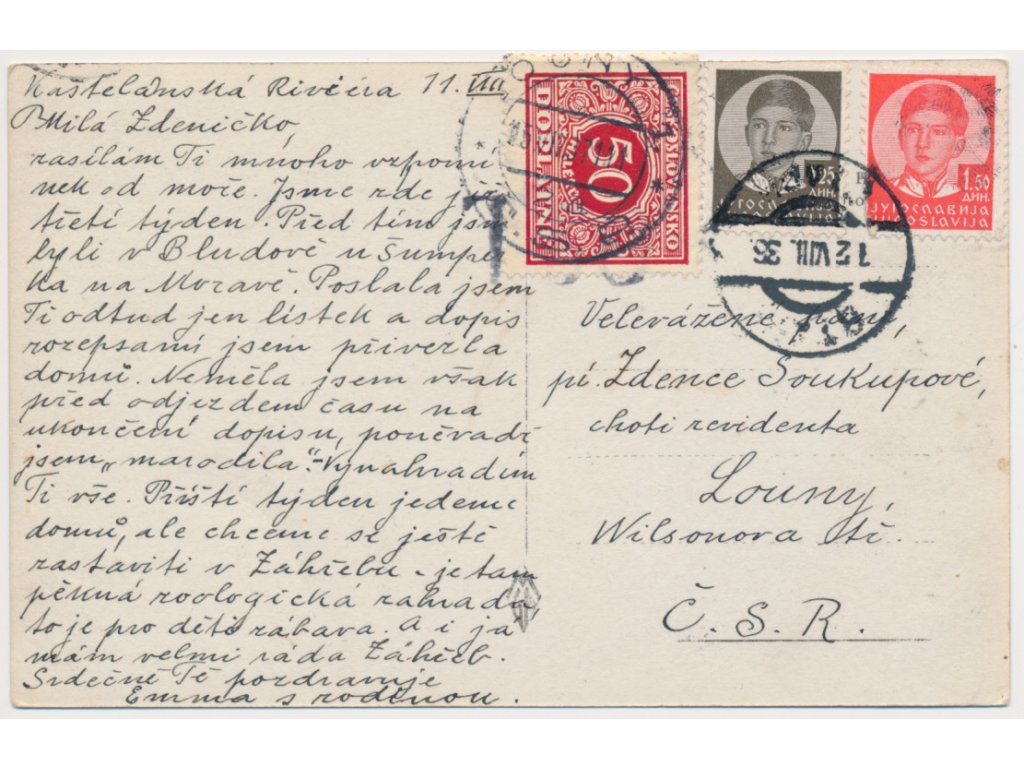 Kaštelánská Riviéra 11. VIII
Milá Zdeničko,
zasílám Ti mnoho vzpomí
nek od moře. Jsme zde již
třetí týden. Před tím jsm
byli v Bludově u Šumper
ka na Moravě. Poslala jsem
Ti odtud jen lístek a dopis
rozepsaný jsem přivezla
domů. Neměla jsem však
před odjezdem času na
ukončení dopisu, poněvadž
jsem „marodila“. - Vynahradím
Ti vše. Příští týden jedeme
domů, ale chceme se ještě
zastaviti v Záhřebu - je tam
pěkná zoologická zahrada
to je pro děti zábava. A i já
mám velmi ráda Záhřeb.
Srdečně Tě pozdravuje
Emma s rodinou.
DOPLATNÉ
50
HALÉŘŮ
ČESKOSLOVENSKO
T
0.25
ДИН.
ЈУГОСЛАВИЈА
JUGOSLAVIJA
1.50
ДИН.
ЈУГОСЛАВИЈА
JUGOSLAVIJA
12 VIII. 36.
Velevážené paní,
pí. Zdence Soukupové,
choti revidenta
Louny,
Wilsonova tř.
Č. S. R.